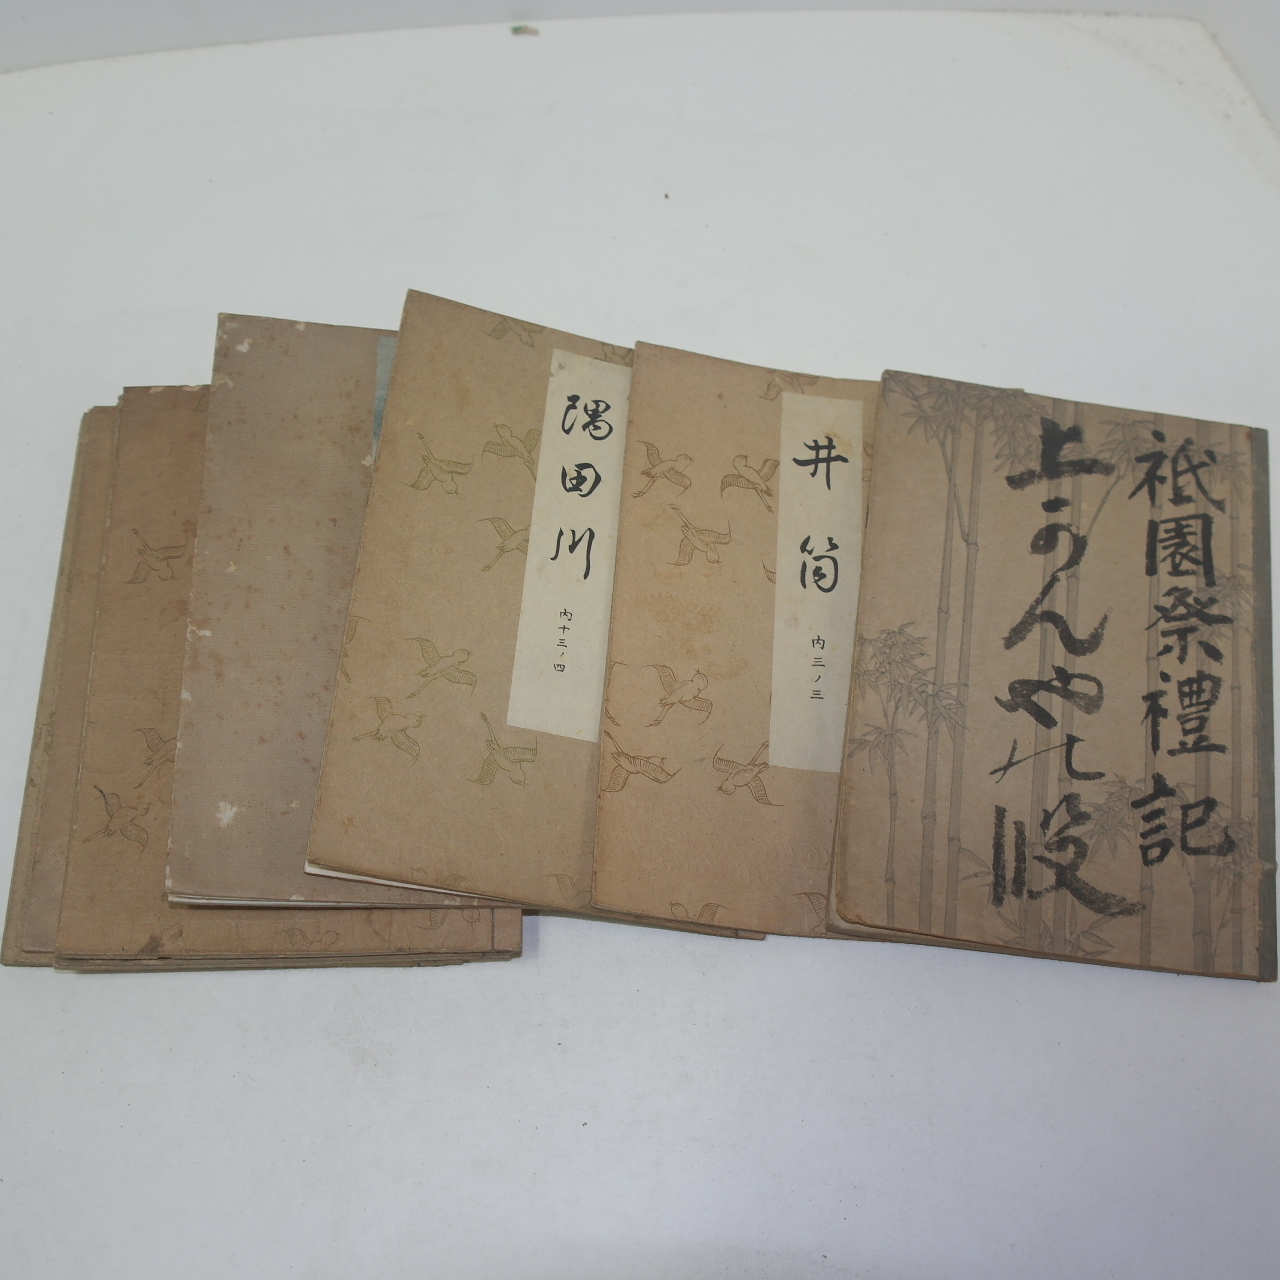 祇園祭禮記
上かんやの段
井筒
内三ノ三
隅田川
内十三ノ四